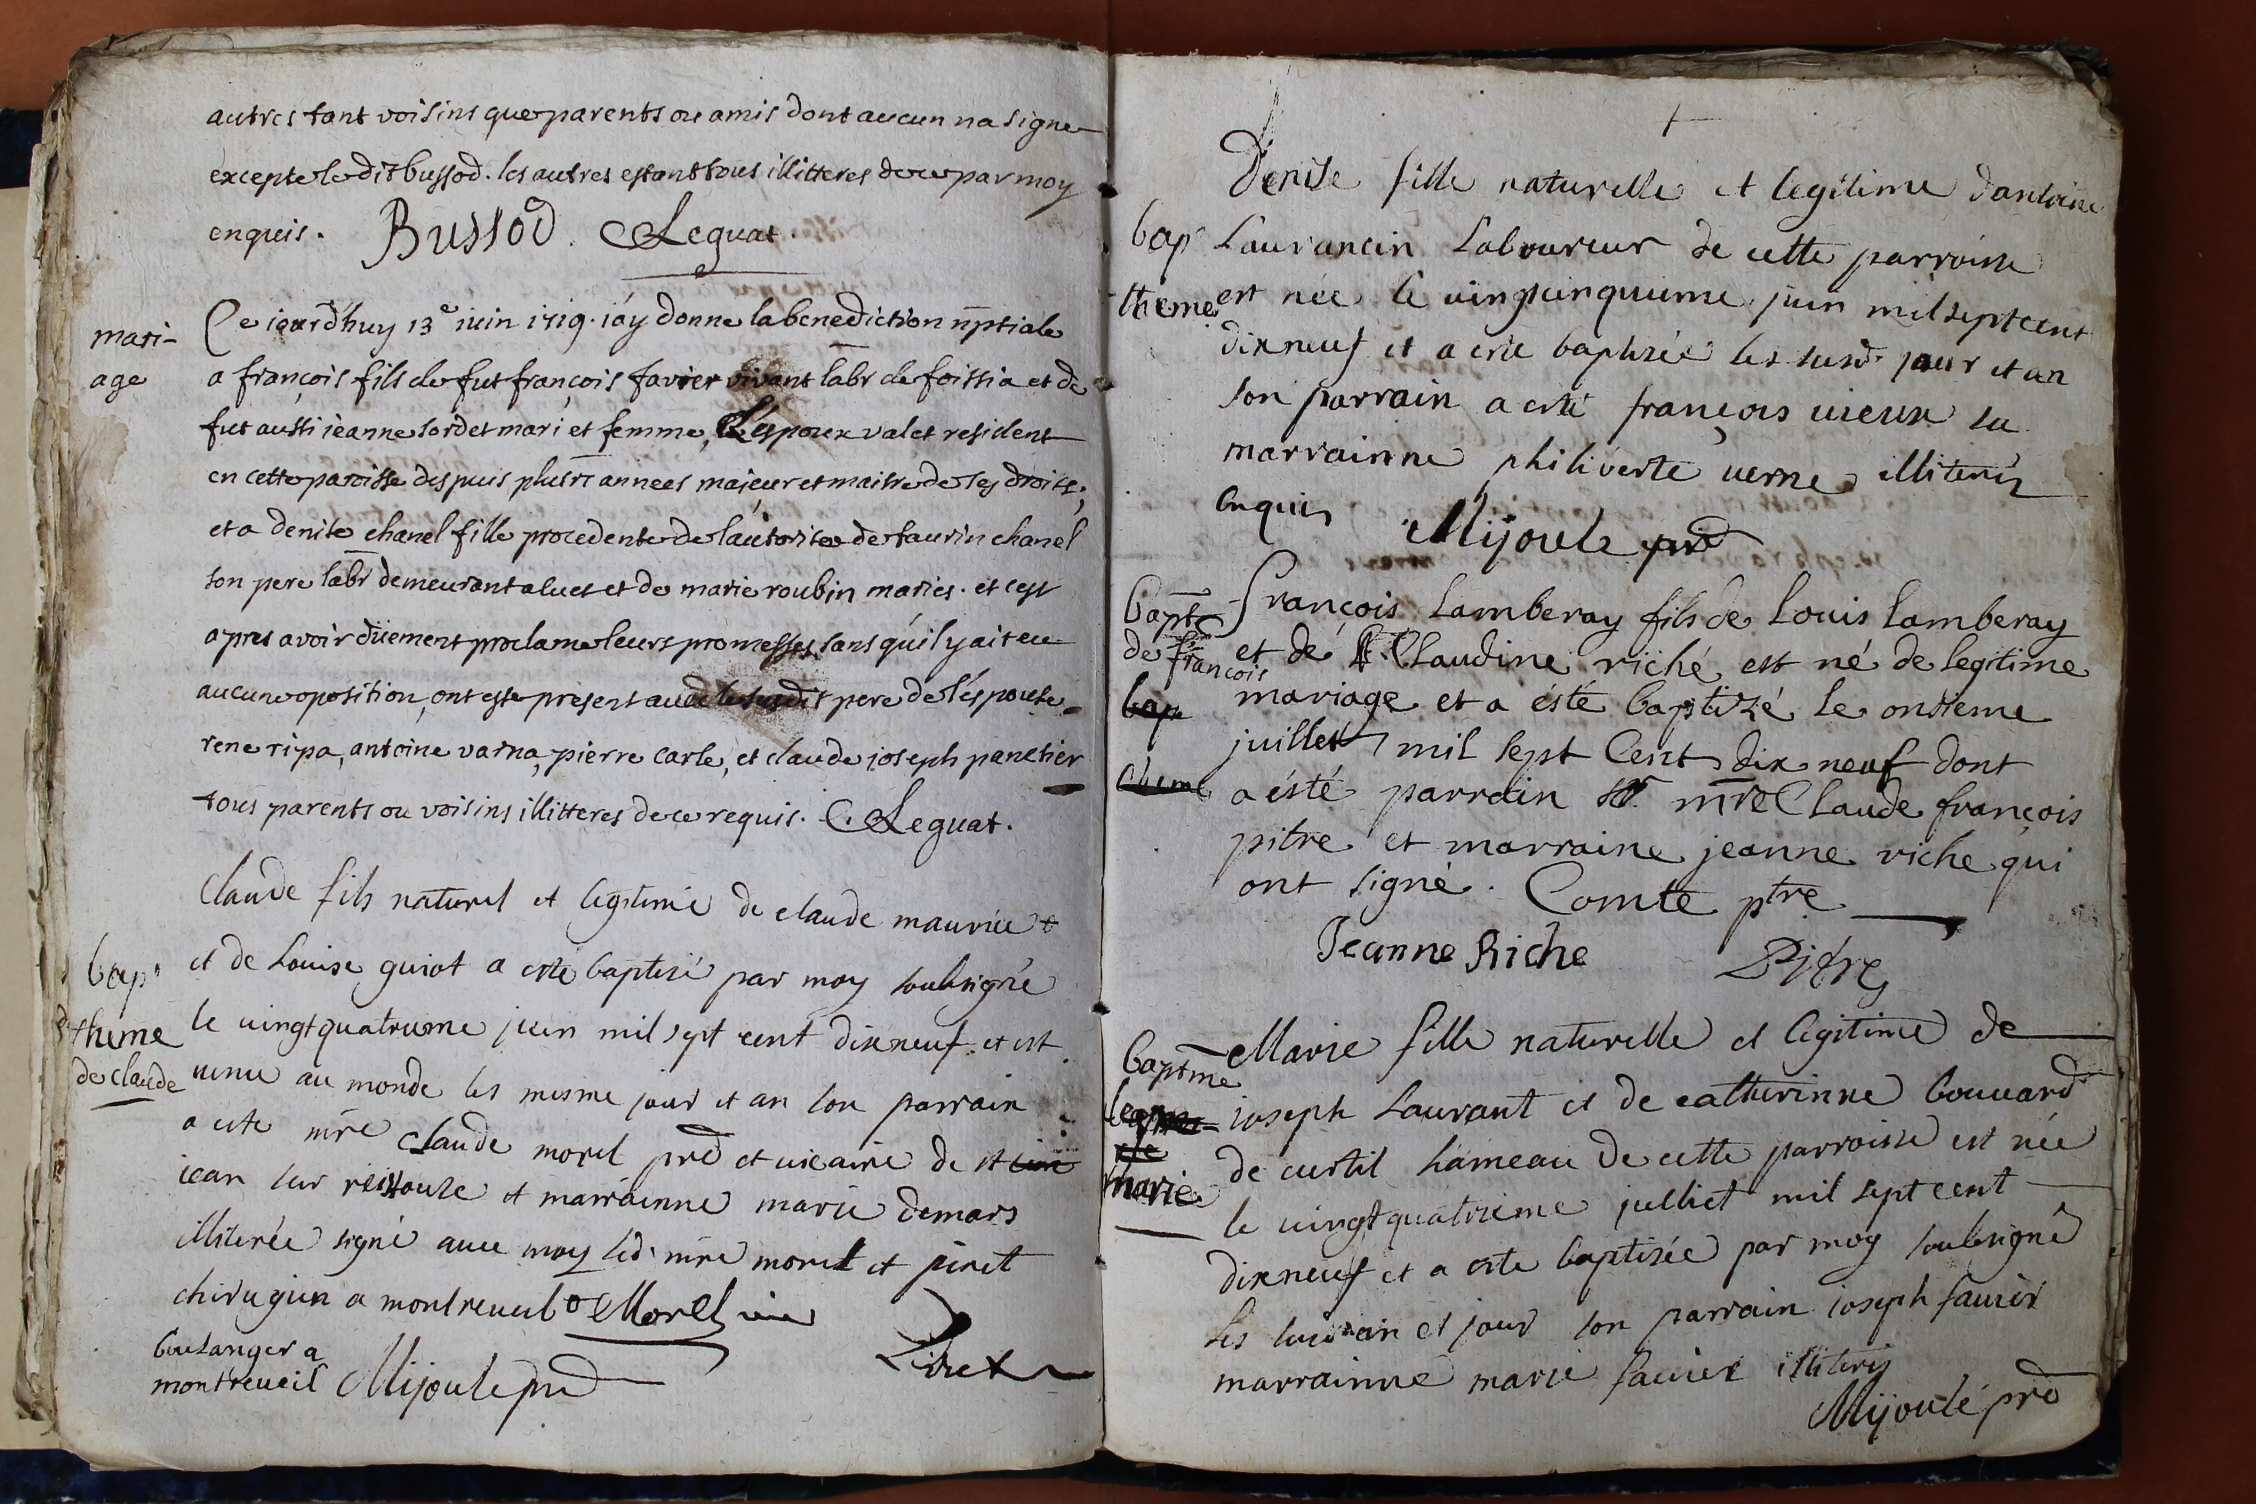 autres tant voisins que parents ou amis dont aucun na signe
excepte le dit bussod. les autres estant tous illitteres de ce par moy
enquis. Bussod. C Leguat.
mari-
age
Ce iourd'huy 13e iuin 1719. i'ay donne la benediction nptiale
a françois fils de fut françois favier vivant labr de foissia et de
fut aussi ieanne sordet mari et femme, l'espoux valet resident
en cette paroisse despuis plusrs annees majeur et maitre de ses droits;
et a denise chanel fille procedente de l'autorite de taurin chanel
son pere labr demeurant a luet et de marie roubin maries. et cest
apres avoir düement proclame leurs promesses sans qu'il y ait eu
aucune oposition, ont este present le susdit pere de l'espouse
rene ripa, antoine varna, pierre carle, et claude ioseph panetier
tous parents ou voisins illitteres de ce requis. C. Leguat.
bap
theme
de claude
Claude fils naturel et legitime de claude maurice
et de Louise guiot a este baptisé par moy soubsigné
le uingtquatrieme juin mil sept cent dixneuf. et est
uenu au monde les mesme jour et an son parrain
a este mre claude morel pre et uicaire de st
iean sur reissouse et marrainne marie demars
illiterée signé auec moy led. mre morel et piret
chirugien a montreueil Morel uic
boulanger a
montreueil Mijoule pre Piret
Denise fille naturelle et legitime dantoine
bap
theme
Laurancin Laboureur de cette parroisse
est née le uingtcinquieme juin mil septcent
dixneuf et a este baptisée les susd. jour et an
son parrain a esté françois uieux sa
marrainne philiberte uerne illiterés
enquis Mijoule pre
bapt
de françois
bap
theme
François Lamberay fils de Louis lamberay
et de Claudine riché est né de legitime
mariage et a ésté baptizé le onzieme
juillet mil sept Cent dix neuf dont
a ésté parrain mre Claude françois
pitre et marraine jeanne riche qui
ont signé. Comte ptre
Jeanne Riche Pitre
baptme
de
marie
Marie fille naturelle et legitime de
ioseph Laurant et de catherinne bouuard
de curtil hameau de cette parroisse est née
le uingtquatrieme julliet mil sept cent
dixneuf et a este baptisée par moy soubsigné
les susd. an et jour son parrain ioseph fauier
marrainne marie fauier illiterés
Mijoulé pre